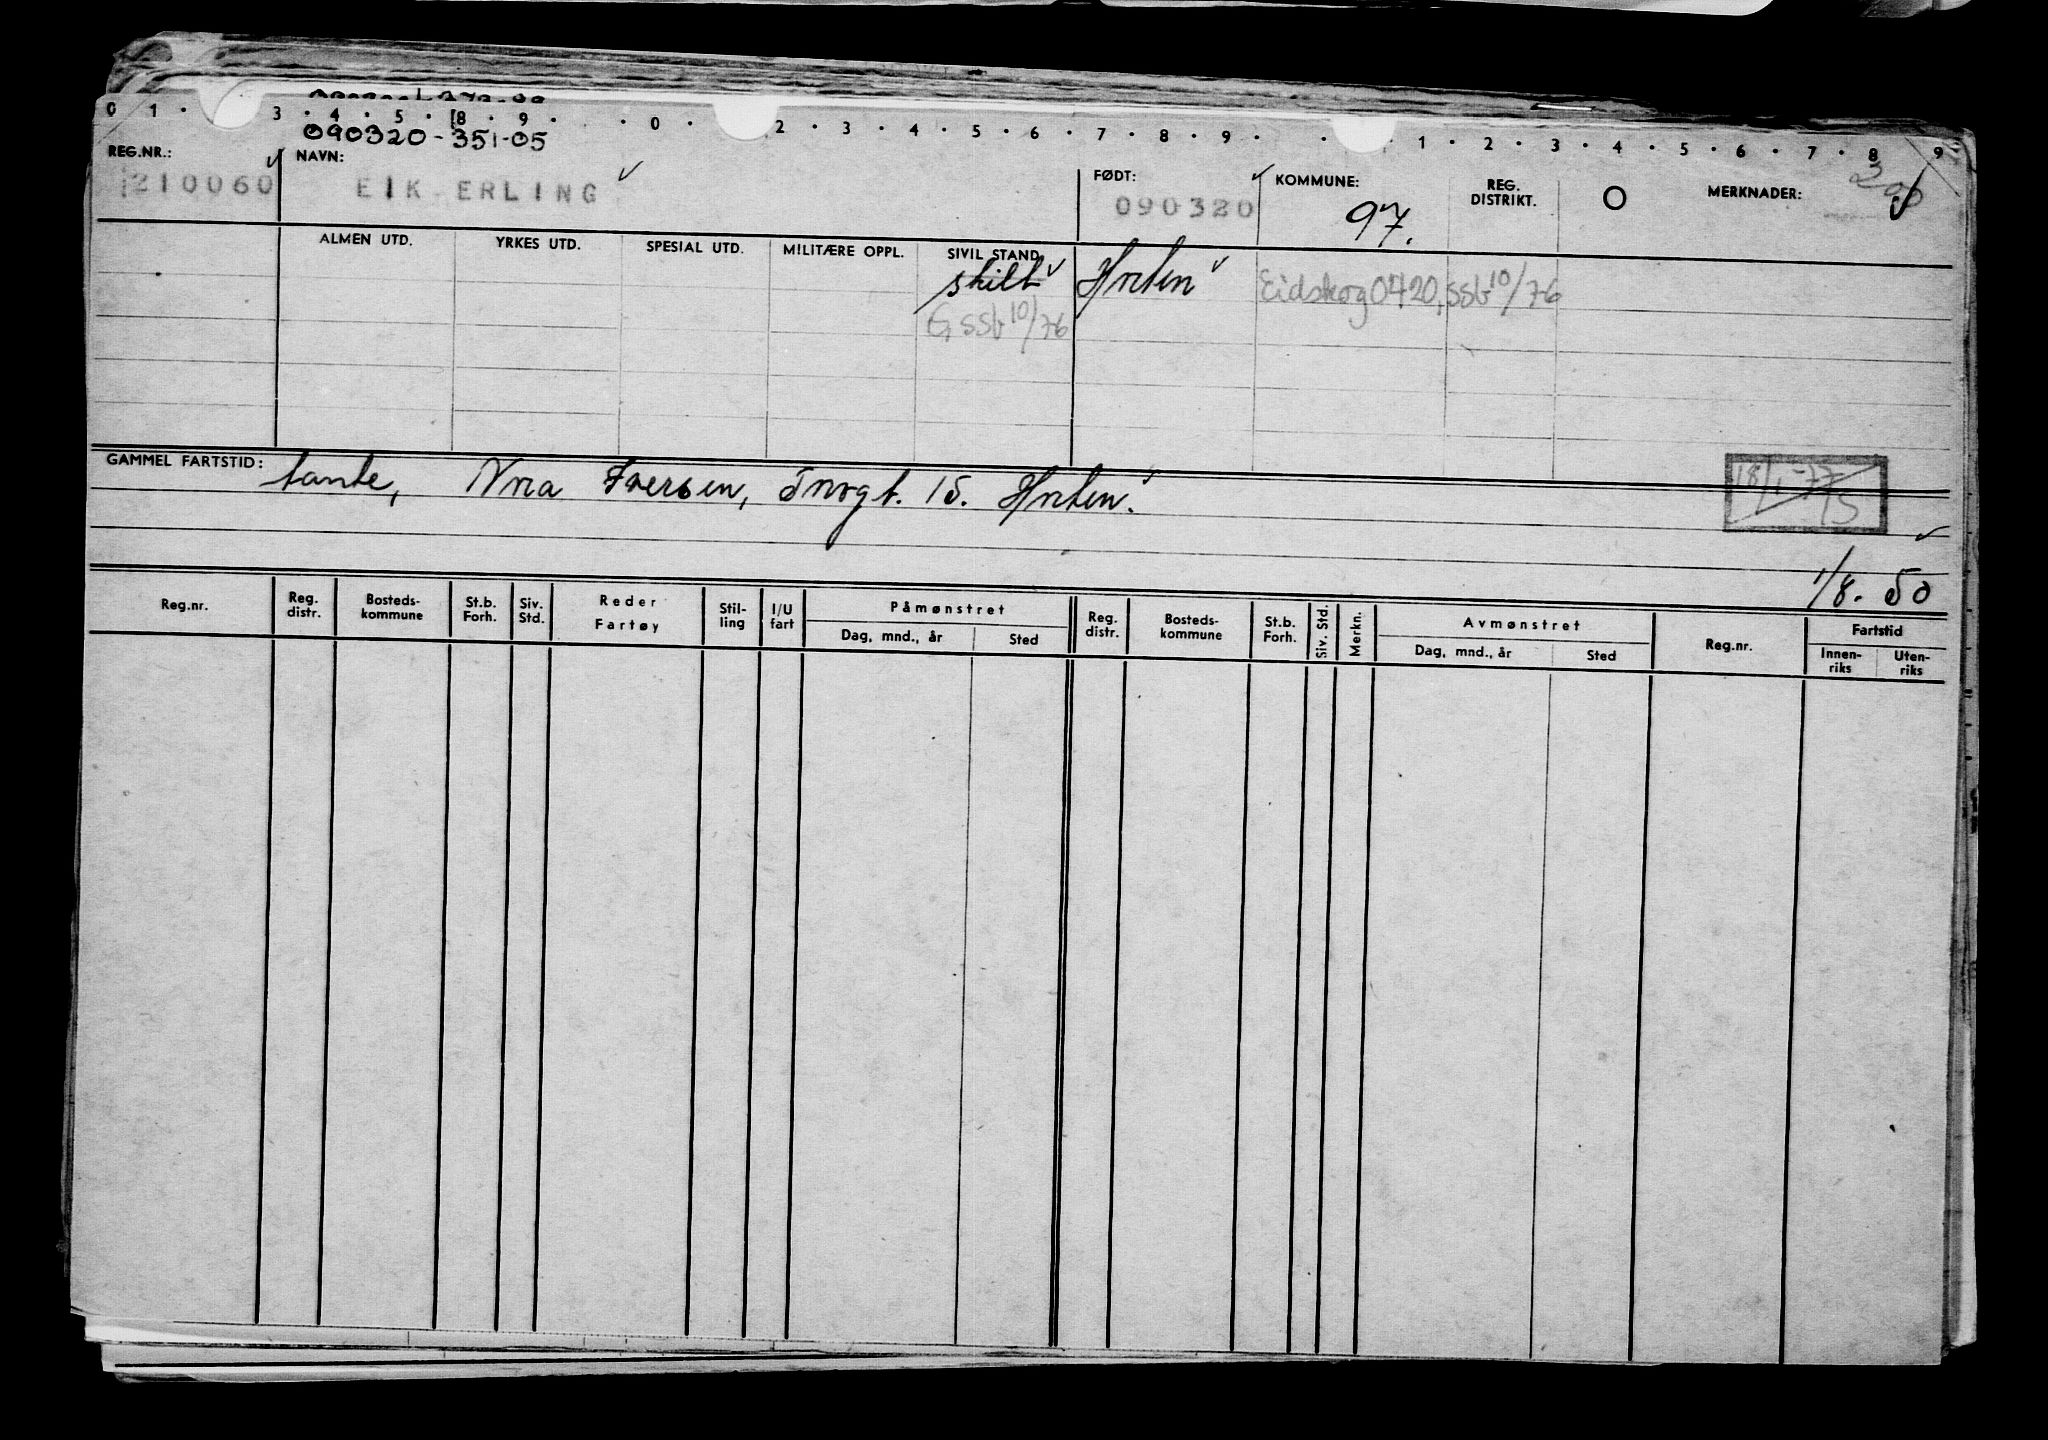 0 1 · 3 · 4 · 5 · 8 · 9 · · 0 · 2 · 3 · 4 · 5 · 6 · 7 · 8 · 9 · · 1 · 2 · 3 · 4 · 5 · 6 · 7 · 8 9
090320-351-05
REG.NR.: NAVN: FØDT: KOMMUNE: REG. DISTRIKT. O MERKNADER:
210060 EIK ERLING 090320 97.
ALMEN UTD. YRKES UTD. SPESIAL UTD. MILITÆRE OPPL. SIVIL STAND
skilt Horten Eidskog 0420, ssb 10/76
G ssb 10/76
GAMMEL FARTSTID: tante, Nora Iversen, Torvgt. 15. Horten.
18/1-77
1/8. 50
Reg.nr. Reg. distr. Bosteds-kommune St.b. Forh. Siv. Std. Reder Fartøy Stil-ling I/U fart Påmønstret Reg. distr. Bosteds-kommune St.b. Forh. Siv. Std. Merkn. Avmønstret Reg.nr. Fartstid
Dag, mnd., år Sted Dag, mnd., år Sted Innen-riks Uten-riks